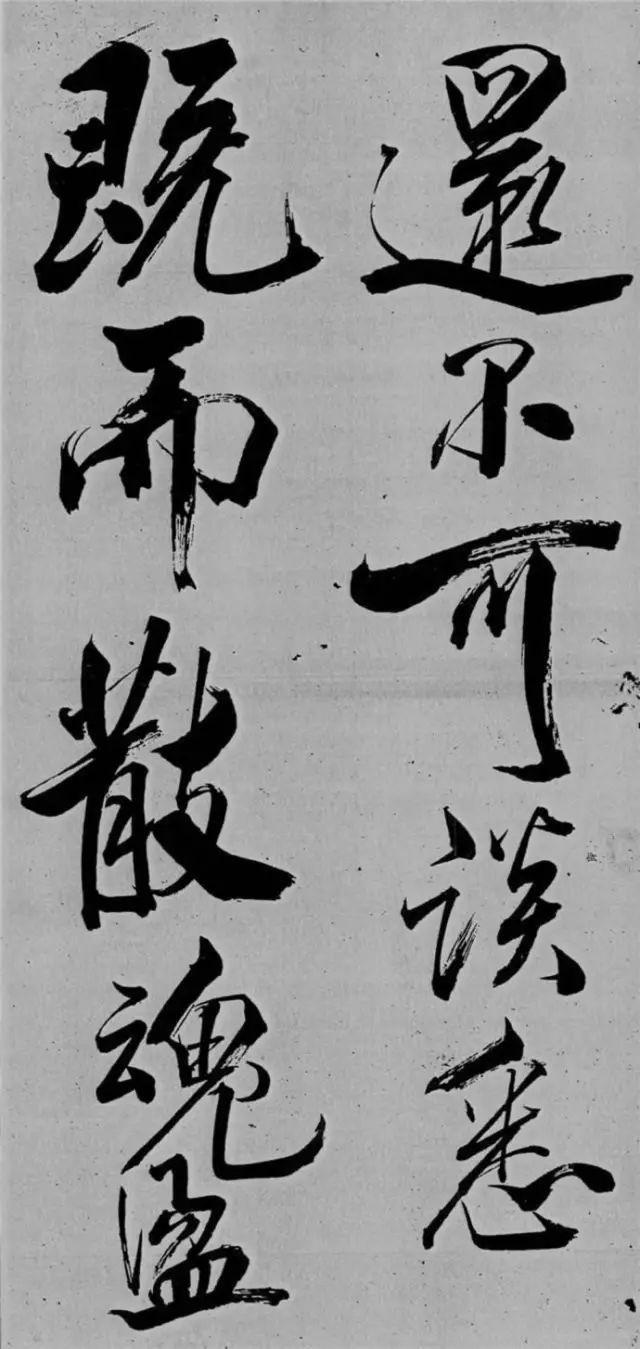 還不可談悉
既而散魂盈